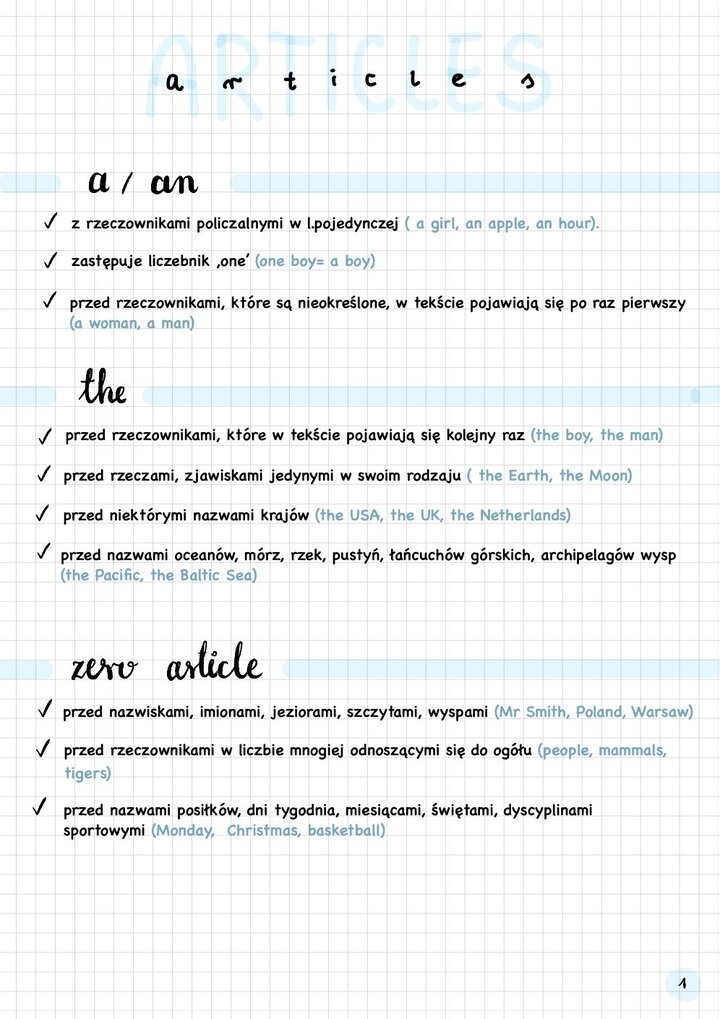 ARTICLES
articles
a / an
z rzeczownikami policzalnymi w l.pojedynczej ( a girl, an apple, an hour).
zastępuje liczebnik ‚one’ (one boy= a boy)
przed rzeczownikami, które są nieokreślone, w tekście pojawiają się po raz pierwszy
(a woman, a man)
the
przed rzeczownikami, które w tekście pojawiają się kolejny raz (the boy, the man)
przed rzeczami, zjawiskami jedynymi w swoim rodzaju ( the Earth, the Moon)
przed niektórymi nazwami krajów (the USA, the UK, the Netherlands)
przed nazwami oceanów, mórz, rzek, pustyń, łańcuchów górskich, archipelagów wysp
(the Pacific, the Baltic Sea)
zero article
przed nazwiskami, imionami, jeziorami, szczytami, wyspami (Mr Smith, Poland, Warsaw)
przed rzeczownikami w liczbie mnogiej odnoszącymi się do ogółu (people, mammals,
tigers)
przed nazwami posiłków, dni tygodnia, miesiącami, świętami, dyscyplinami
sportowymi (Monday, Christmas, basketball)
1